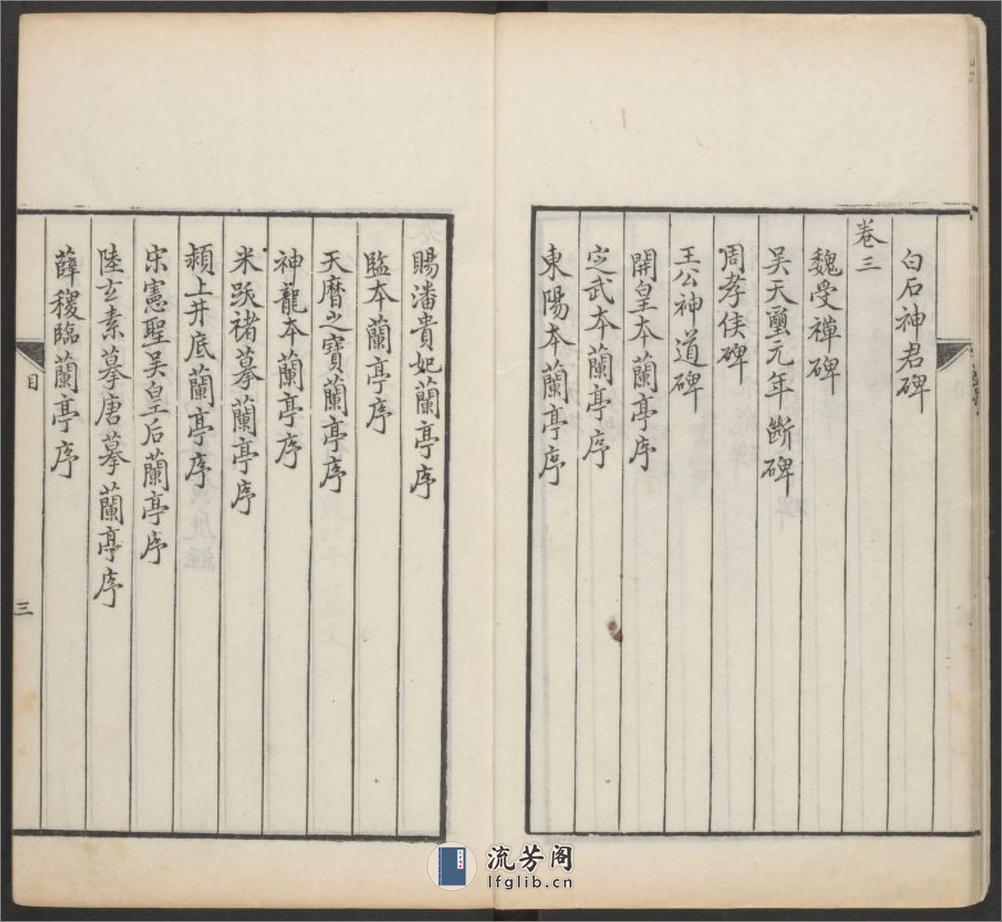 白石神君碑
卷三
魏受禪碑
吴天璽元年斷碑
周孝侯碑
王公神道碑
開皇本蘭亭序
定武本蘭亭序
東陽本蘭亭序
賜潘貴妃蘭亭序
監本蘭亭序
天曆之寶蘭亭序
神龍本蘭亭序
米跋褚摹蘭亭序
頴上井底蘭亭序
宋憲聖吴皇后蘭亭序
陸玄素摹唐摹蘭亭序
薛稷臨蘭亭序
目
三
流芳阁
lfglib.cn